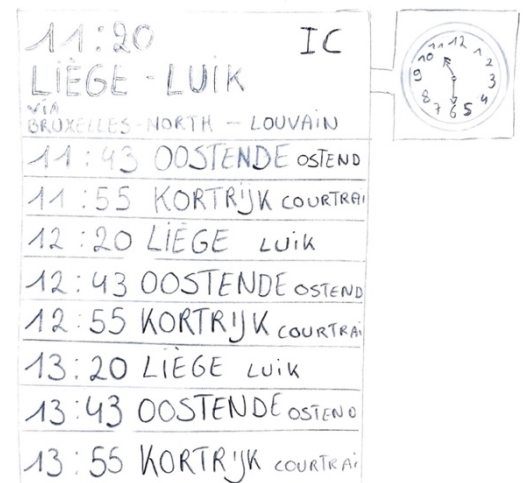 11:20 IC
LIÈGE - LUIK
VIA
BRUXELLES-NORTH - LOUVAIN
11:43 OOSTENDE OSTEND
11:55 KORTRIJK COURTRAI
12:20 LIÈGE LUIK
12:43 OOSTENDE OSTEND
12:55 KORTRIJK COURTRAI
13:20 LIÈGE LUIK
13:43 OOSTENDE OSTEND
13:55 KORTRIJK COURTRAI
12
1
2
3
4
5
6
7
8
9
10
11